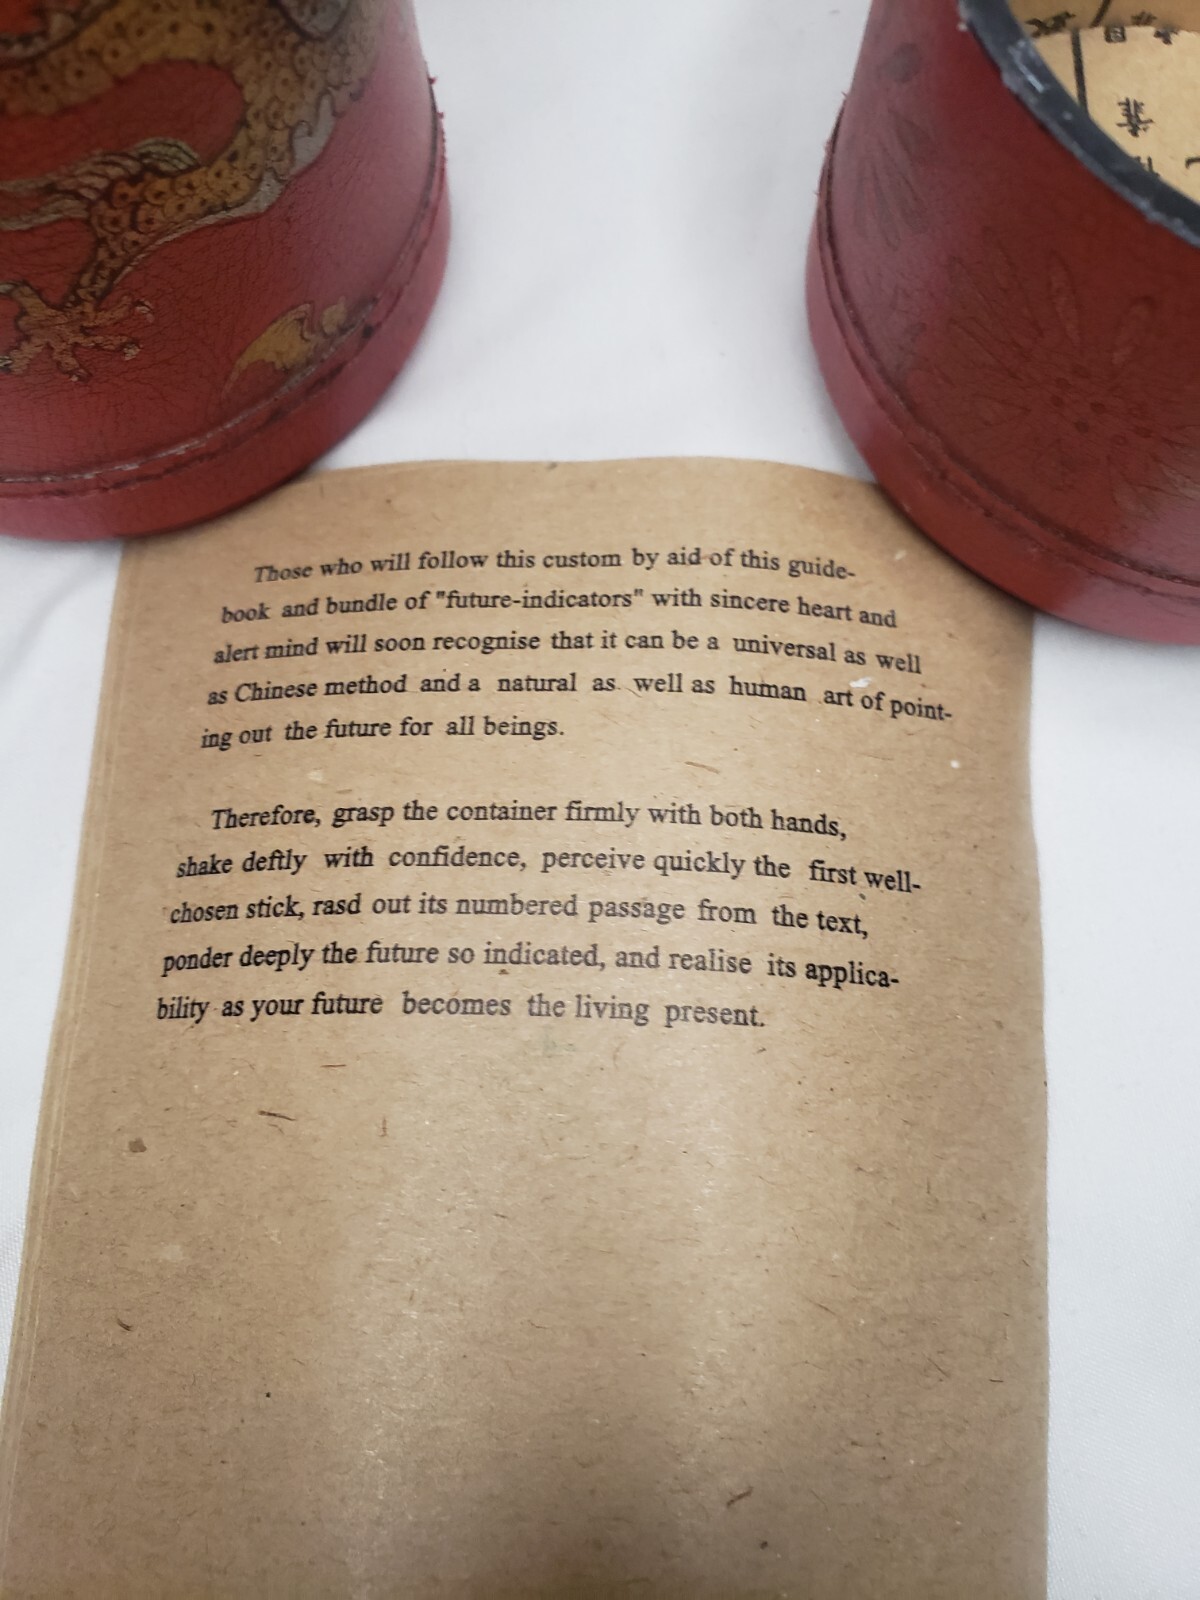 Those who will follow this custom by aid of this guide-
book and bundle of "future-indicators" with sincere heart and
alert mind will soon recognise that it can be a universal as well
as Chinese method and a natural as well as human art of point-
ing out the future for all beings.
Therefore, grasp the container firmly with both hands,
shake deftly with confidence, perceive quickly the first well-
chosen stick, rasd out its numbered passage from the text,
ponder deeply the future so indicated, and realise its applica-
bility as your future becomes the living present.